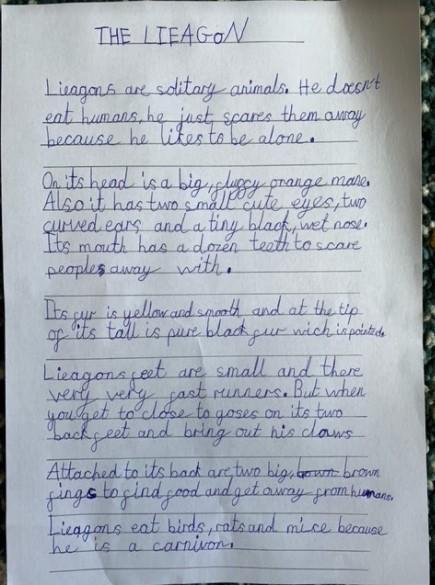 THE LIEAGON
Lieagons are solitary animals. He doesn't
eat humans, he just scares them away
because he likes to be alone.
On its head is a big, fluffy orange mane.
Also it has two small cute eyes, two
curved ears and a tiny black, wet nose.
Its mouth has a dozen teeth to scare
peoples away with.
Its fur is yellow and smooth and at the tip
of its tail is pure black fur wich is pointed.
Lieagons feet are small and there
very very fast runners. But when
you get to close to goses on its two
back feet and bring out his claws
Attached to its back are two big, brown
fings to find food and get away from humans.
Lieagons eat birds, rats and mice because
he is a carnivon.